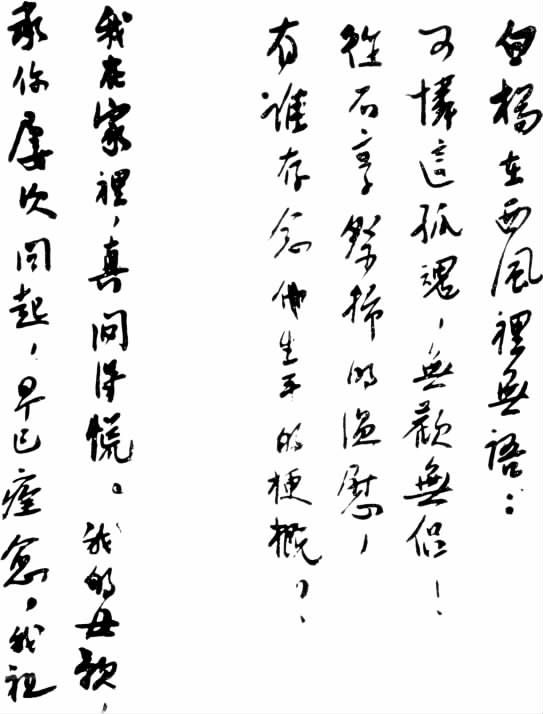 白楊在西風裡無語：
可憐這孤魂，無歡無侶！
從不享祭掃的溫慰，
有誰存念他生平的梗概？
我在家裡，真悶得慌。我的母親，
承你屢次問起，早已痊愈，我祖